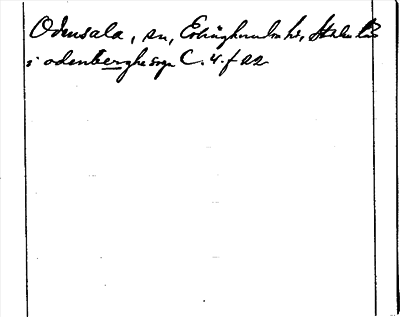 Odensala, sn, Erlinghundra hd, Stockh. län
i odenberghe sogn C. 4. f 22